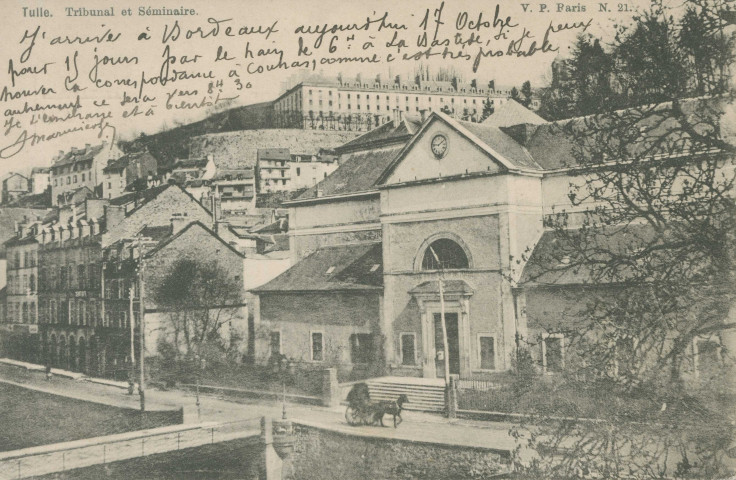 Tulle. Tribunal et Séminaire.
V. P. Paris N. 21.
J'arrive à Bordeaux aujourd'hui 17 Octobre
pour 15 jours par le train de 6h à La Bastide, si je peux
trouver la correspondance à Coutras, comme c'est très probable
autrement ce sera vers 8H 30
Je t'embrasse et à bientôt